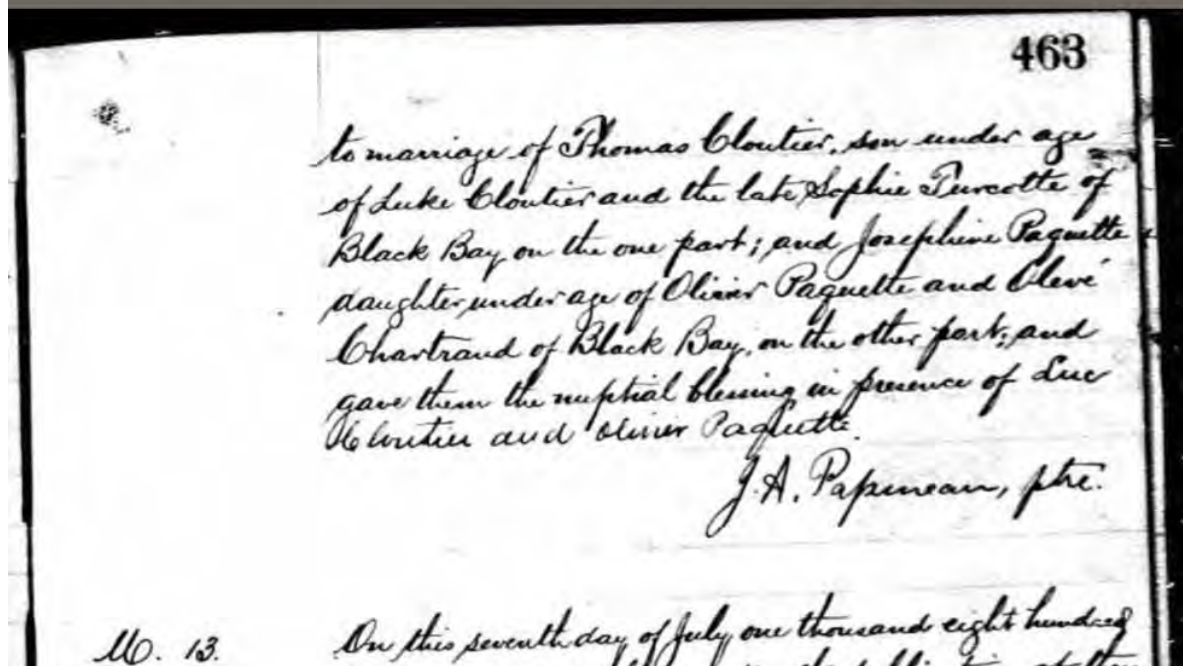 463
to marriage of Thomas Cloutier, son under age
of Luke Cloutier and the late Sophie Turcotte of
Black Bay on the one part; and Josephine Paquette
daughter under age of Olivier Paquette and Olevé
Chartrand of Black Bay, on the other part; and
gave them the nuptial blessing in presence of Luc
Cloutier and Olivier Paquette.
J. A. Papineau, ptre.
M. 13. On this seventh day of July one thousand eight hundred